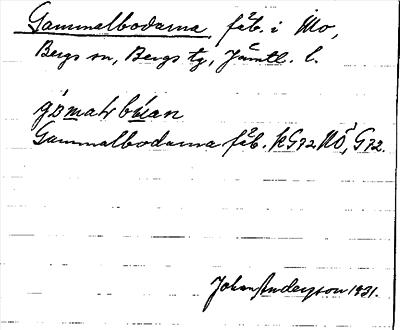 Gammalbodarna, fäb. i Mo,
Bergs sn, Bergs tg, Jämtl. l.
Gammalbodarna fäb. k G72 Mo, G72.
Johan Anderzon 1931.